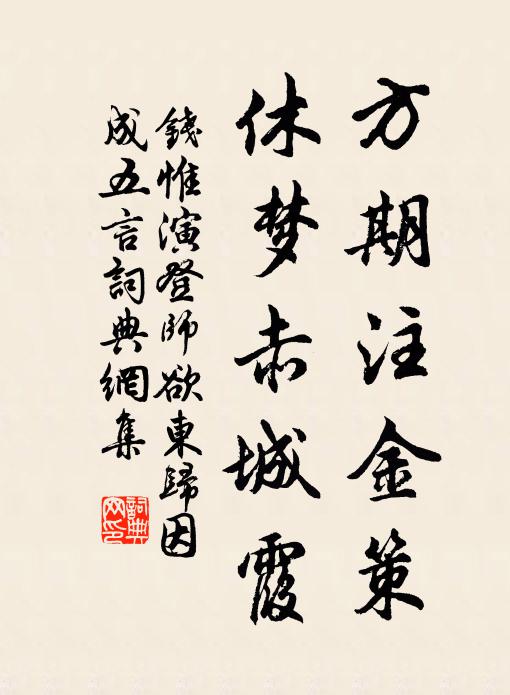 方期注金策
休梦赤城霞
錢惟演登師欲東歸因
成五言詞典網集
詞典
网印